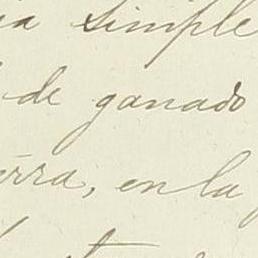 simple
de ganado
en la